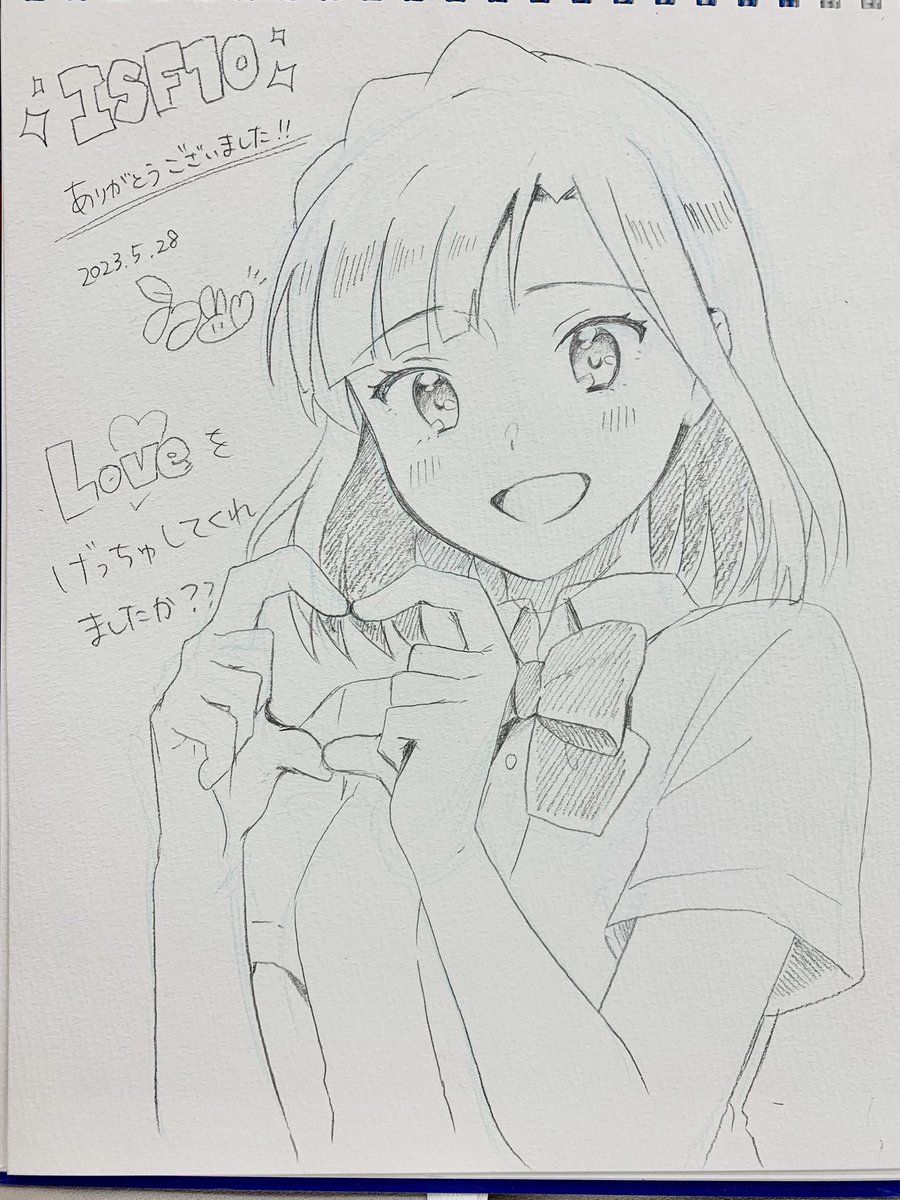 ISF10
ありがとうございました!!
2023.5.28
Loveを
げっちゅしてくれ
ましたか??